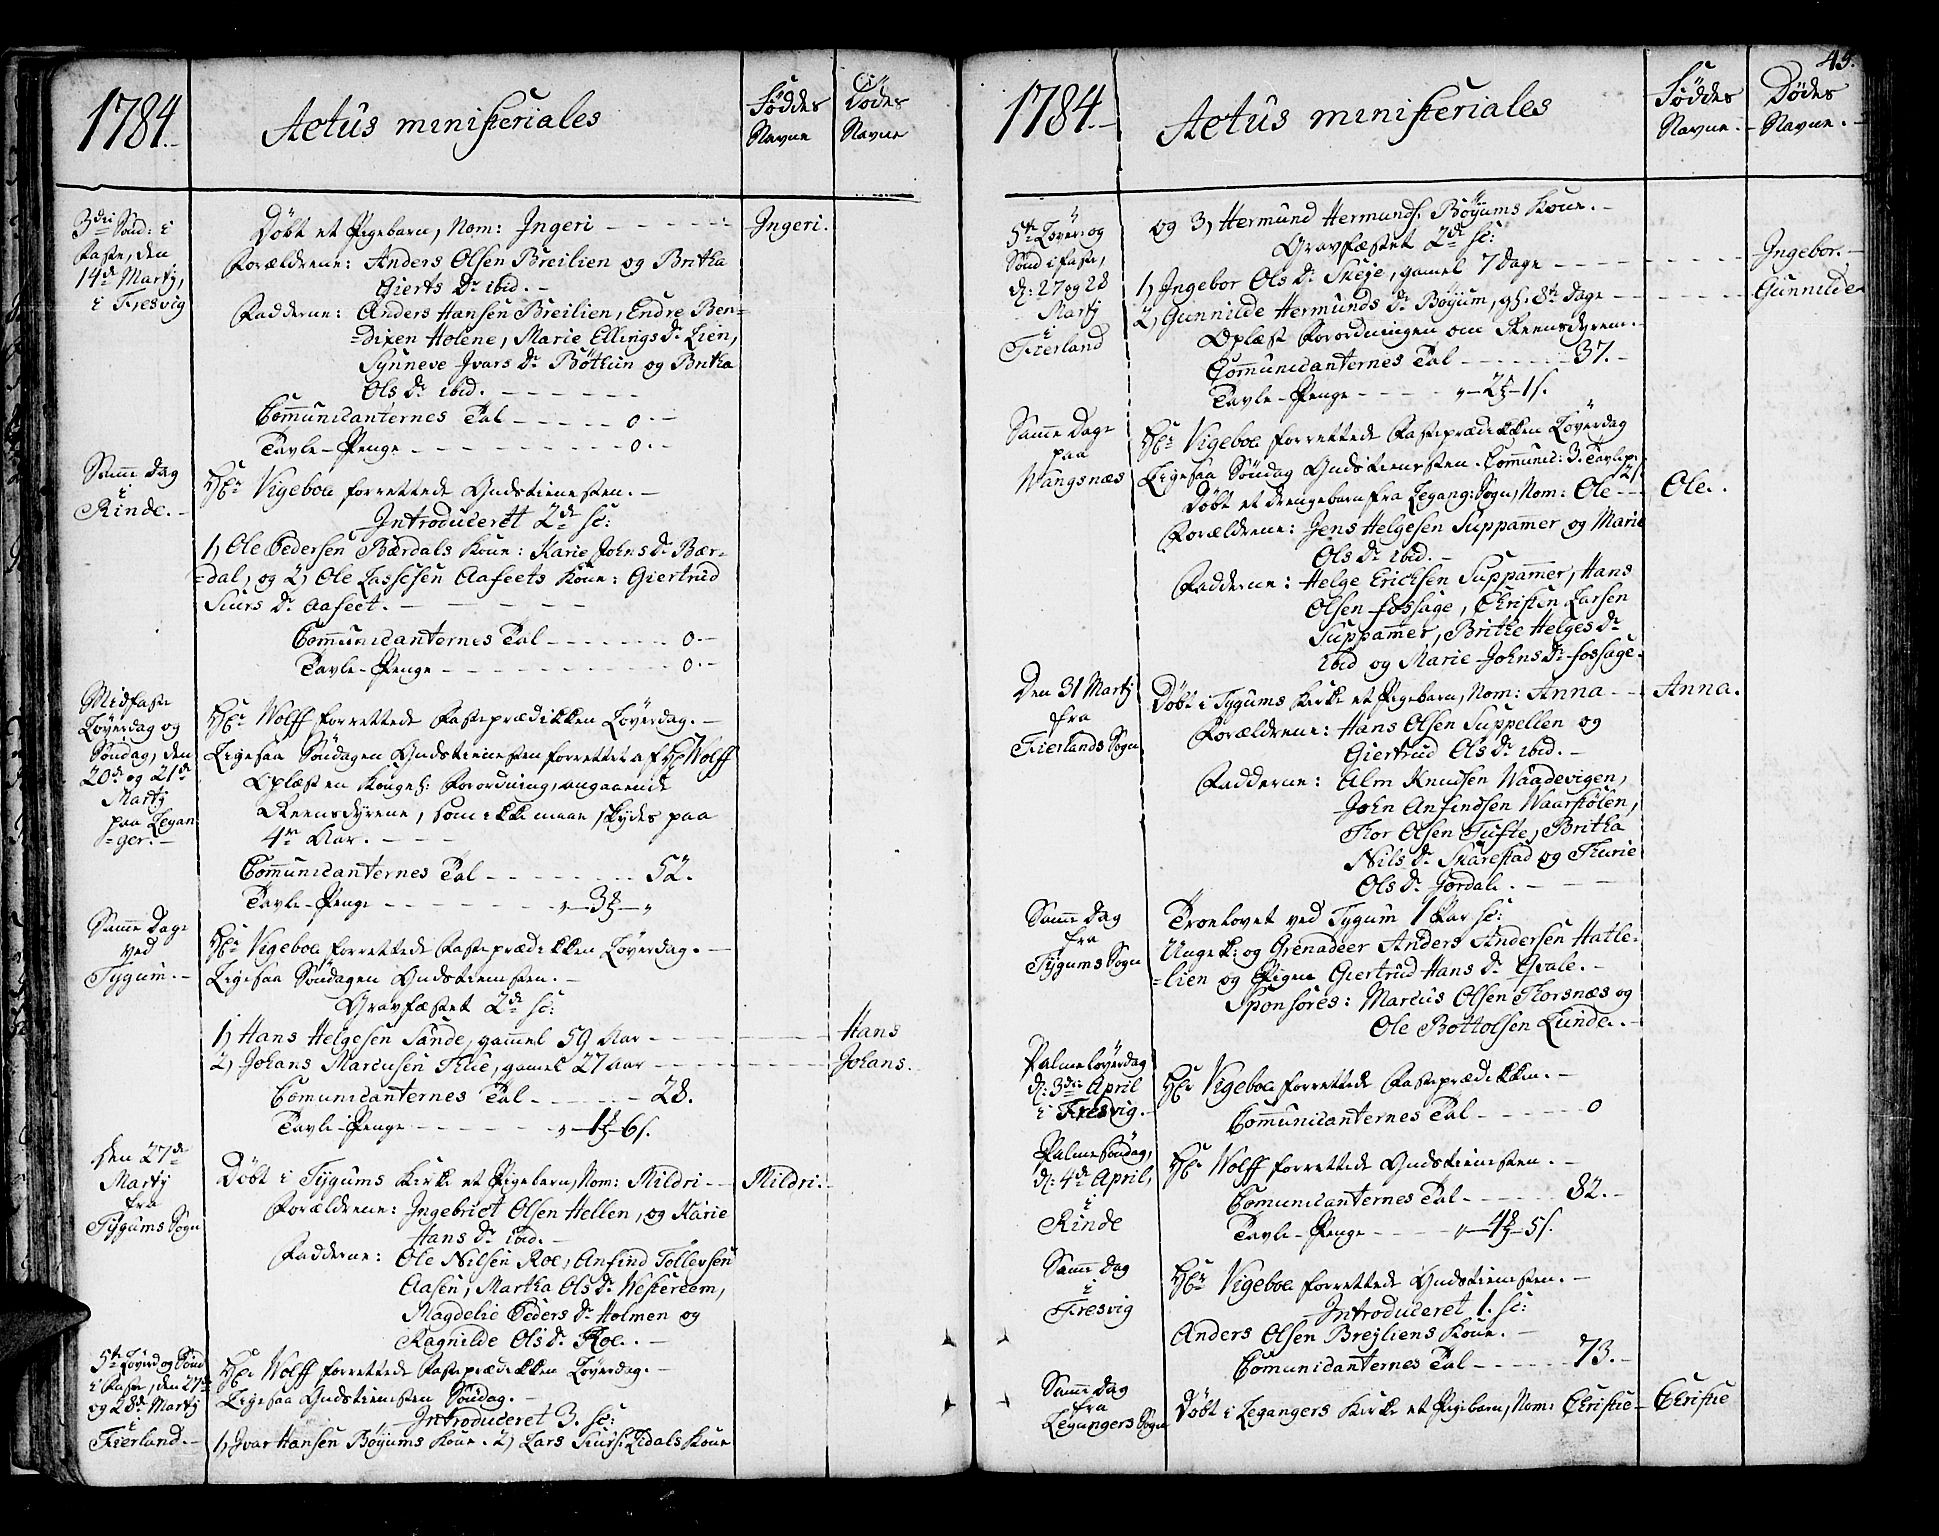 1784.
Actus ministeriales
Föddes Navne
Dödes Navne
3die Sönd: i
Faste, den
14de Martÿ,
i Fresvig
Döbt et Pigebarn, Nom: Ingeri - - - - - - Ingeri.
Forældrene: Anders Olsen Breilien og Britha
Gierts Dr ibid. -
Fadderne: Anders Hansen Breilien, Endre Ben=
=dixen Holene, Marie Ellings Dr Lien,
Synneve Ivars Dr Böttun og Britha
Ols Dr ibid. - - - - - -
Communicanternes Tal - - - - - 0. -
Tavle-Penge - - - - - - - - - 0. -
Samme Dag
i
Rinde. -
Hr. Vigeboe forrettede Gudstienesten. -
Introduceret 2de sc:
1, Ole Pedersen Bærdals Kone: Karie Johns Dr Bær-
=dal, og 2, Ole Lassesen Aafeets Kone: Giertrud
Siurs Dr Aafeet. - - - - -
Communicanternes Tal - - - - - - - 0. -
Tavle-Penge - - - - - - - - - - 0. -
Midfaste
Löverdag og
Söndag, den
20de og 21de
Martÿ
paa Legan
=ger. -
Hr. Wolff forrettede Fasteprædikken Löverdag. -
Ligesaa Söndagen Gudstienesten forrettet af Hr Wolff
Oplæst en Kongel: Forordning, angaaende
Reensdyrene, som ikke maae skydes paa
4re Aar. - - -
Communicanternes Tal - - - - - - - - 52.
Tavle-Penge - - - - - - - - „ - 3 - „
Samme Dage
ved
Tygum. -
Hr. Vigeboe forrettede Fasteprædikken Löverdag. -
Ligesaa Söndagen Gudstienesten. -
Gravfæstet 2de sc:
1, Hans Helgesen Sande, gammel 59 Aar - - - - - - Hans
2, Johans Marcusen Thue, gamel 27 aar - - - - - - Johans.
Communicanternes Tal - - - - - - 28.
Tavle-Penge - - - - - - „ - 1 - 6 s.
Den 27de
Martÿ
fra
Tygums Sogn
Döbt i Tygums Kirke et Pigebarn, Nom: Mildri - - Mildri.
Forældrene: Ingebrict Olsen Hellen, og Karie
Hans Dr ibid. -
Fadderne: Ole Nilsen Roe, Anfind Tollevsen
Aasen, Martha Ols Dr Westereem,
Magdelie Peders Dr Holmen og
Ragnilde Ols Dr Roe. -
5te Löverd og Sönd
i Faste, den 27de
og 28de Martÿ
i
Fierland. -
Hr. Wolff forrettede Fasteprædikken Löverdag. -
Ligesaa Gudstienesten Söndag. -
Introduceret 3. sc:
1, Ivar Hansen Böyums Kone. 2, Lars Siurs. Eidals Kone
45.
1784. -
Actus ministeriales
Föddes Navne. -
Dödes Navne. -
5te Löver: og
Sönd i faste,
d: 27 og 28
Martÿ
i
Fierland
og 3, Hermund Hermunds. Böyums Kone. -
Gravfæstet 2de sc:
1, Ingebor Ols Dr Skeje, gamel 7 Dage - - - - - - Ingebor. -
2, Gunnilde Hermunds Dr Böyum, gl. 8te dage - - - - - Gunnilde
Oplæst Forordningen om Reensdyrene. -
Communicanternes Tal - - - - - - 37. -
Tavle-Penge - - - - „ - 2 - 1 s.
Samme Dage
paa
Wangsnæs
Hr. Vigeboe forrettede Fasteprædikken Löverdag
Ligesaa Söndag Gudstienesten. Communic: 3. Tavlep: 2 s.
Döbt et drengebarn fra Legang: Sogn, Nom: Ole - - Ole.
Forældrene: Jens Helgesen Suppamer og Marie
Ols Dr ibid. -
Fadderne: Helge Ericksen Suppamer, Hans
Olsen Fossage, Christen Larsen
Suppammer, Brithe Helges Dr
ibid og Marie Johns Dr Fossage.
Den 31 Martÿ
fra
Fierlands Sogn
Döbt i Tygums Kirke et Pigebarn, Nom: Anna - - Anna.
Forældrene: Hans Olsen Suppellen og
Giertrud Ols Dr ibid. -
Fadderne: Alm Knudsen Waadevigen,
John Anfindsen Waarstölen,
Thor Olsen Tufte, Britha
Nils Dr Skarestad og Thurie
Ols Dr Jordal. - - -
Samme Dag
fra
Tygums Sogn
Troelovet ved Tygum 1 Par sc:
Ungek: og Grenadeer Anders Andersen Hatle-
=lien og Pigen Giertrud Hans Dr Qvale. -
Sponsores: Marcus Olsen Thorsnæs og
Ole Bottolsen Lunde. -
Palmelöverdag
d: 3die April
i Fresvig. -
Hr. Vigeboe forrettede Fasteprædikken. -
Communicanternes Tal - - - - - - 0
Palmesöndag,
d: 4de April,
i
Rinde
Hr. Wolff forrettede Gudstienesten. -
Communicanternes Tal - - - - - - 82. -
Tavle-Penge - - - - - „ - 4 - 5 s.
Samme Dag
i
Fresvig
Hr. Vigeboe forrettede Gudstienesten. -
Introduceret 1. sc:
Anders Olsen Brejliens Kone. -
Communicanternes Tal - - - - - - 73. -
Samme Dag
fra
Legangers Sogn
Döbt i Legangers Kirke et Pigebarn, Nom: Christie - Christie